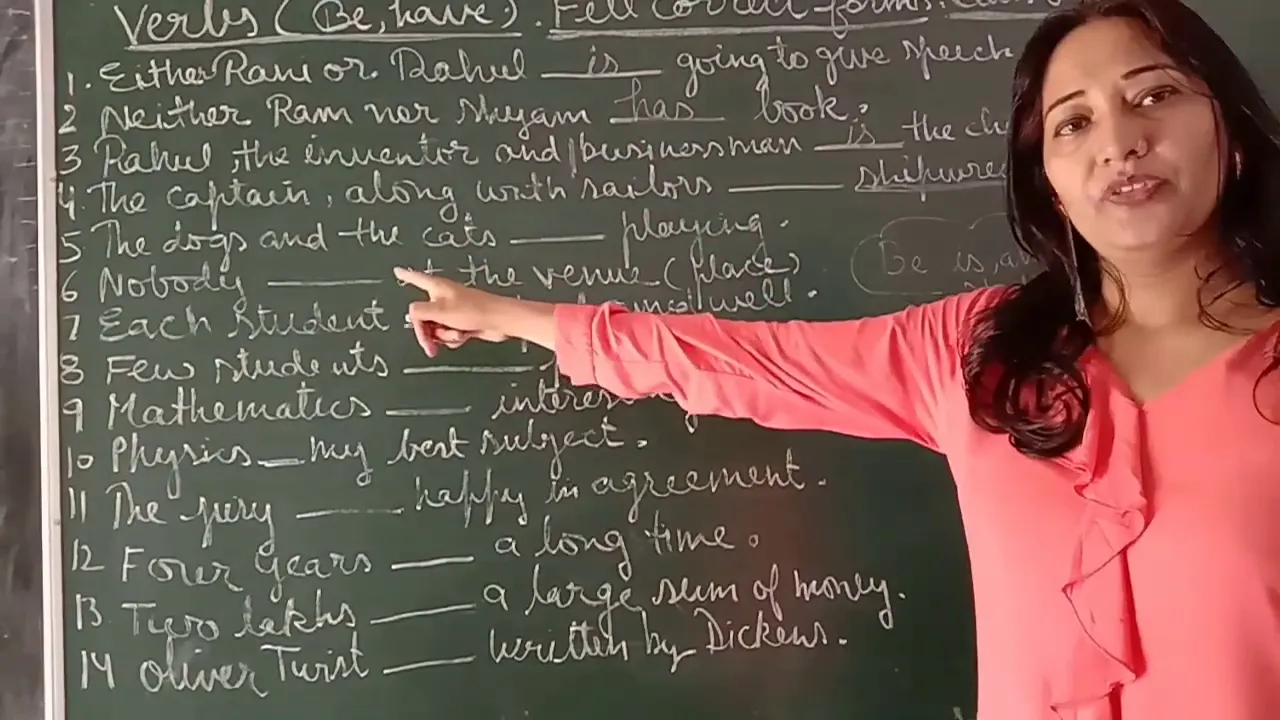 Verbs (Be, have). Fill correct forms.
1. Either Rani or Rahul is going to give speech
2 Neither Ram nor Shyam has book.
3 Rahul, the inventor and businessman is the
4. The captain, along with sailors ____
5 The dogs and the cats ____ playing.
6 Nobody ____ at the venue (place)
7 Each student well.
8 Few students ____
9 Mathematics ____
10 Physics __ my best subject.
11 The jury ____ happy in agreement.
12 Four years ____ a long time.
13 Two lakhs ____ a large sum of money.
14 Oliver Twist ____ written by Dickens.
Be is,